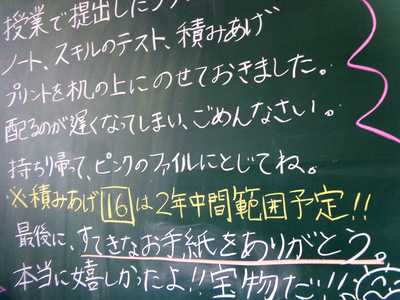 授業で提出したプリ
ノート、スキルのテスト、積みあげ
プリントを机の上にのせておきました。
配るのが遅くなってしまい、ごめんなさい。
持ち帰って、ピンクのファイルにとじてね。
※積みあげ16は2年中間範囲予定!!
最後に、すてきなお手紙をありがとう。
本当に嬉しかったよ!!宝物だ!!